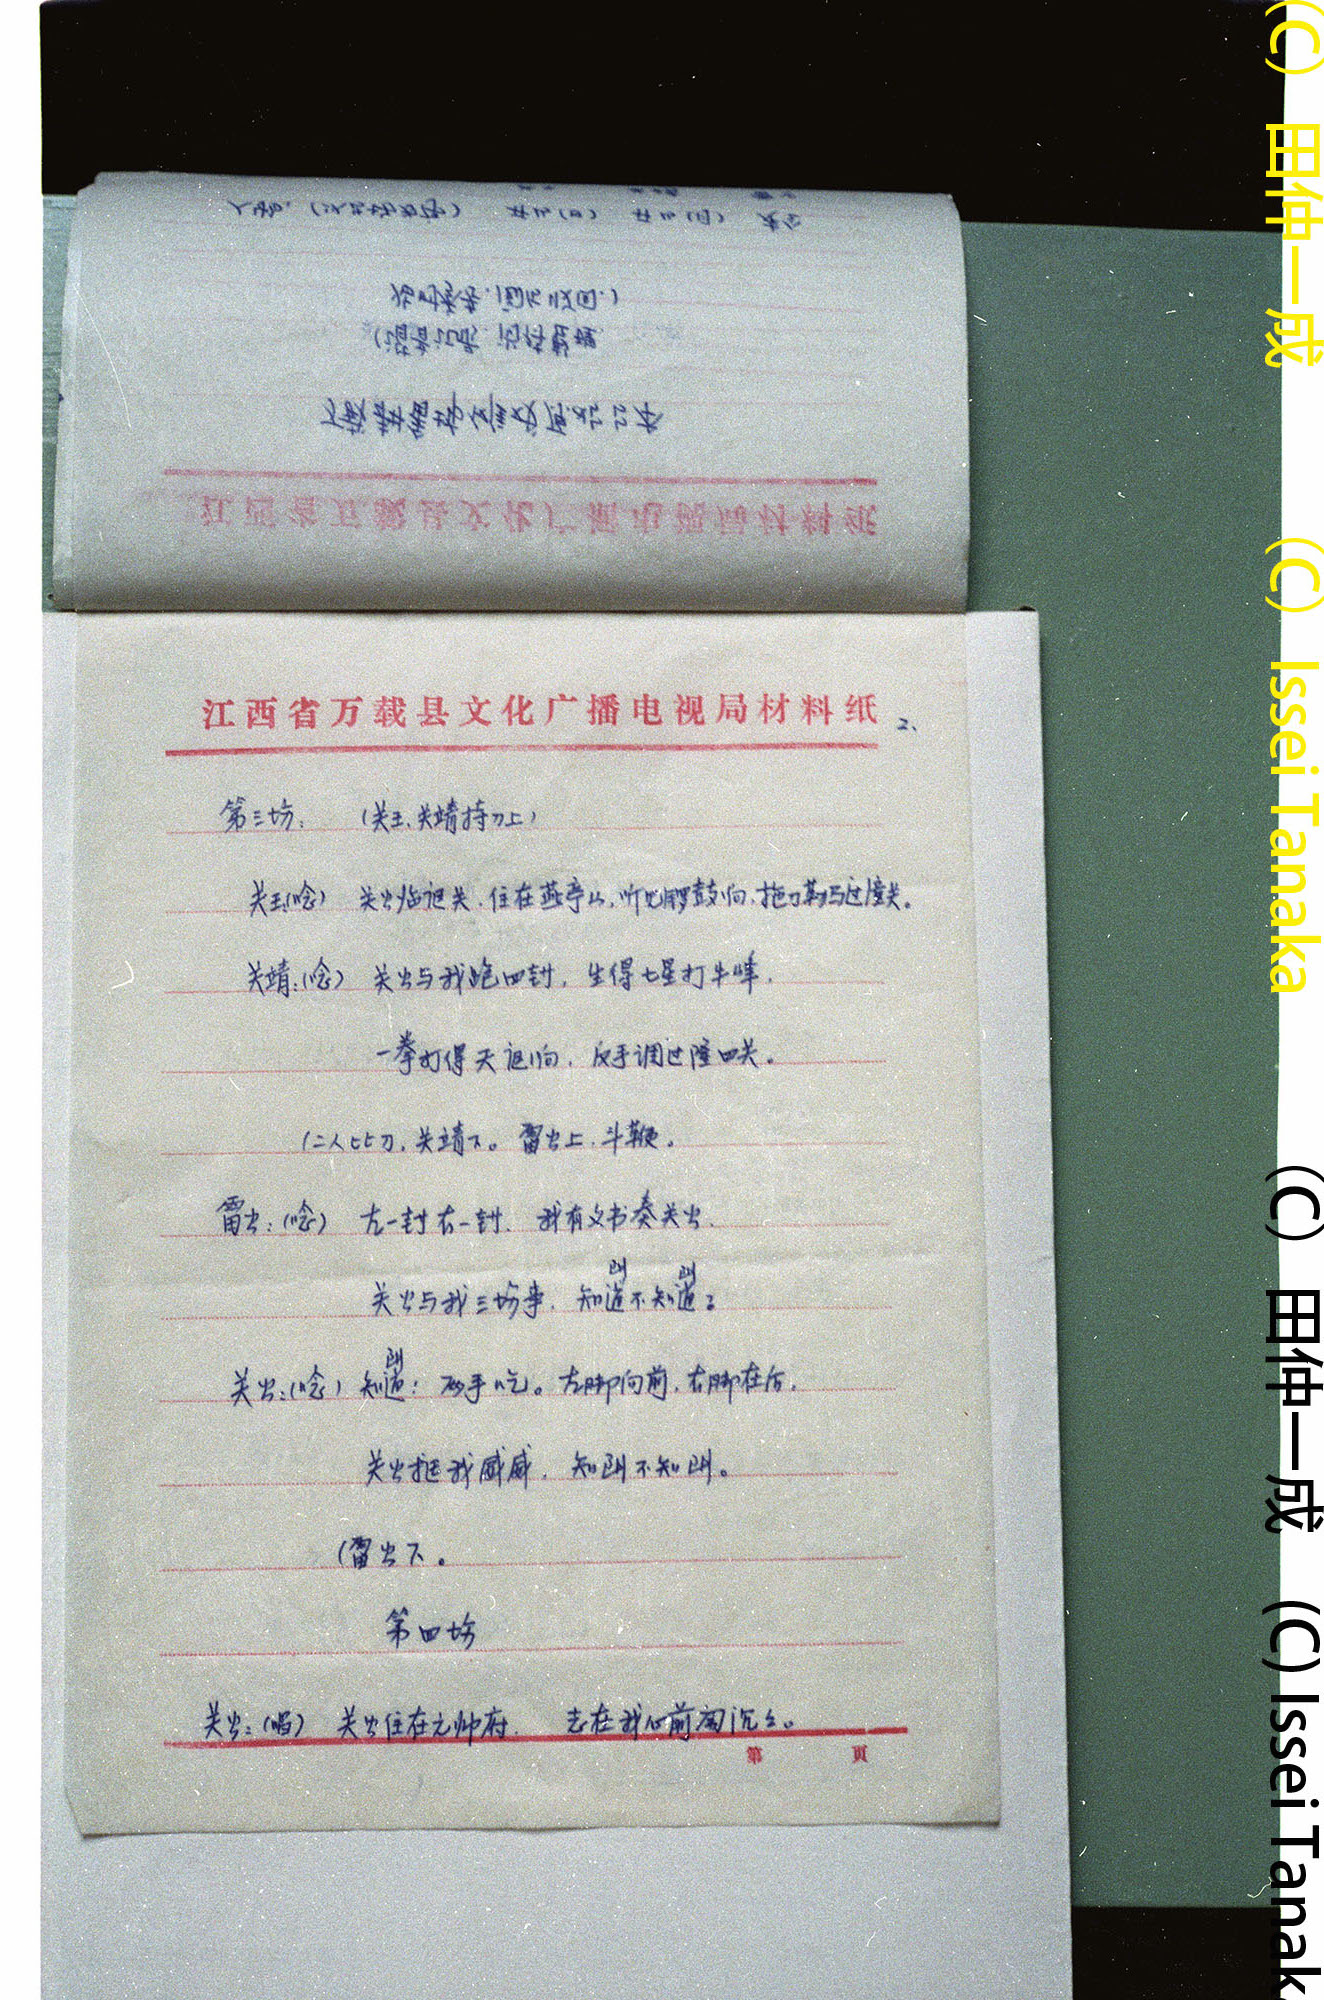 江西省万载县文化广播电视局材料纸
2、
第三坊: (关王、关靖持刀上)
关王:(唸) 关公临诅关、住在燕亭山,听见锣鼓响、拖刀勒马过潼关。
关靖:(唸) 关公与我跑四封, 生得七星打牛峰,
一拳打得天诅响, 反手调过隆四关。
(二人比刀,关靖下。雷公上、斗鞭。
雷公:(唸) 左一封右一封、 我有文书奏关公、
关公与我三坊事、 知道不知道?
关公:(唸) 知道: 两手吃。左脚向前,右脚在后,
关公 我威威、 知 不知 。
(雷公下。
第四坊
关公:(唱) 关公住在元帅府、 志在我心前闹沉沉。
第 页
(C) 田仲一成 (C) Issei Tanaka
(C) 田仲一成 (C) Issei Tanak